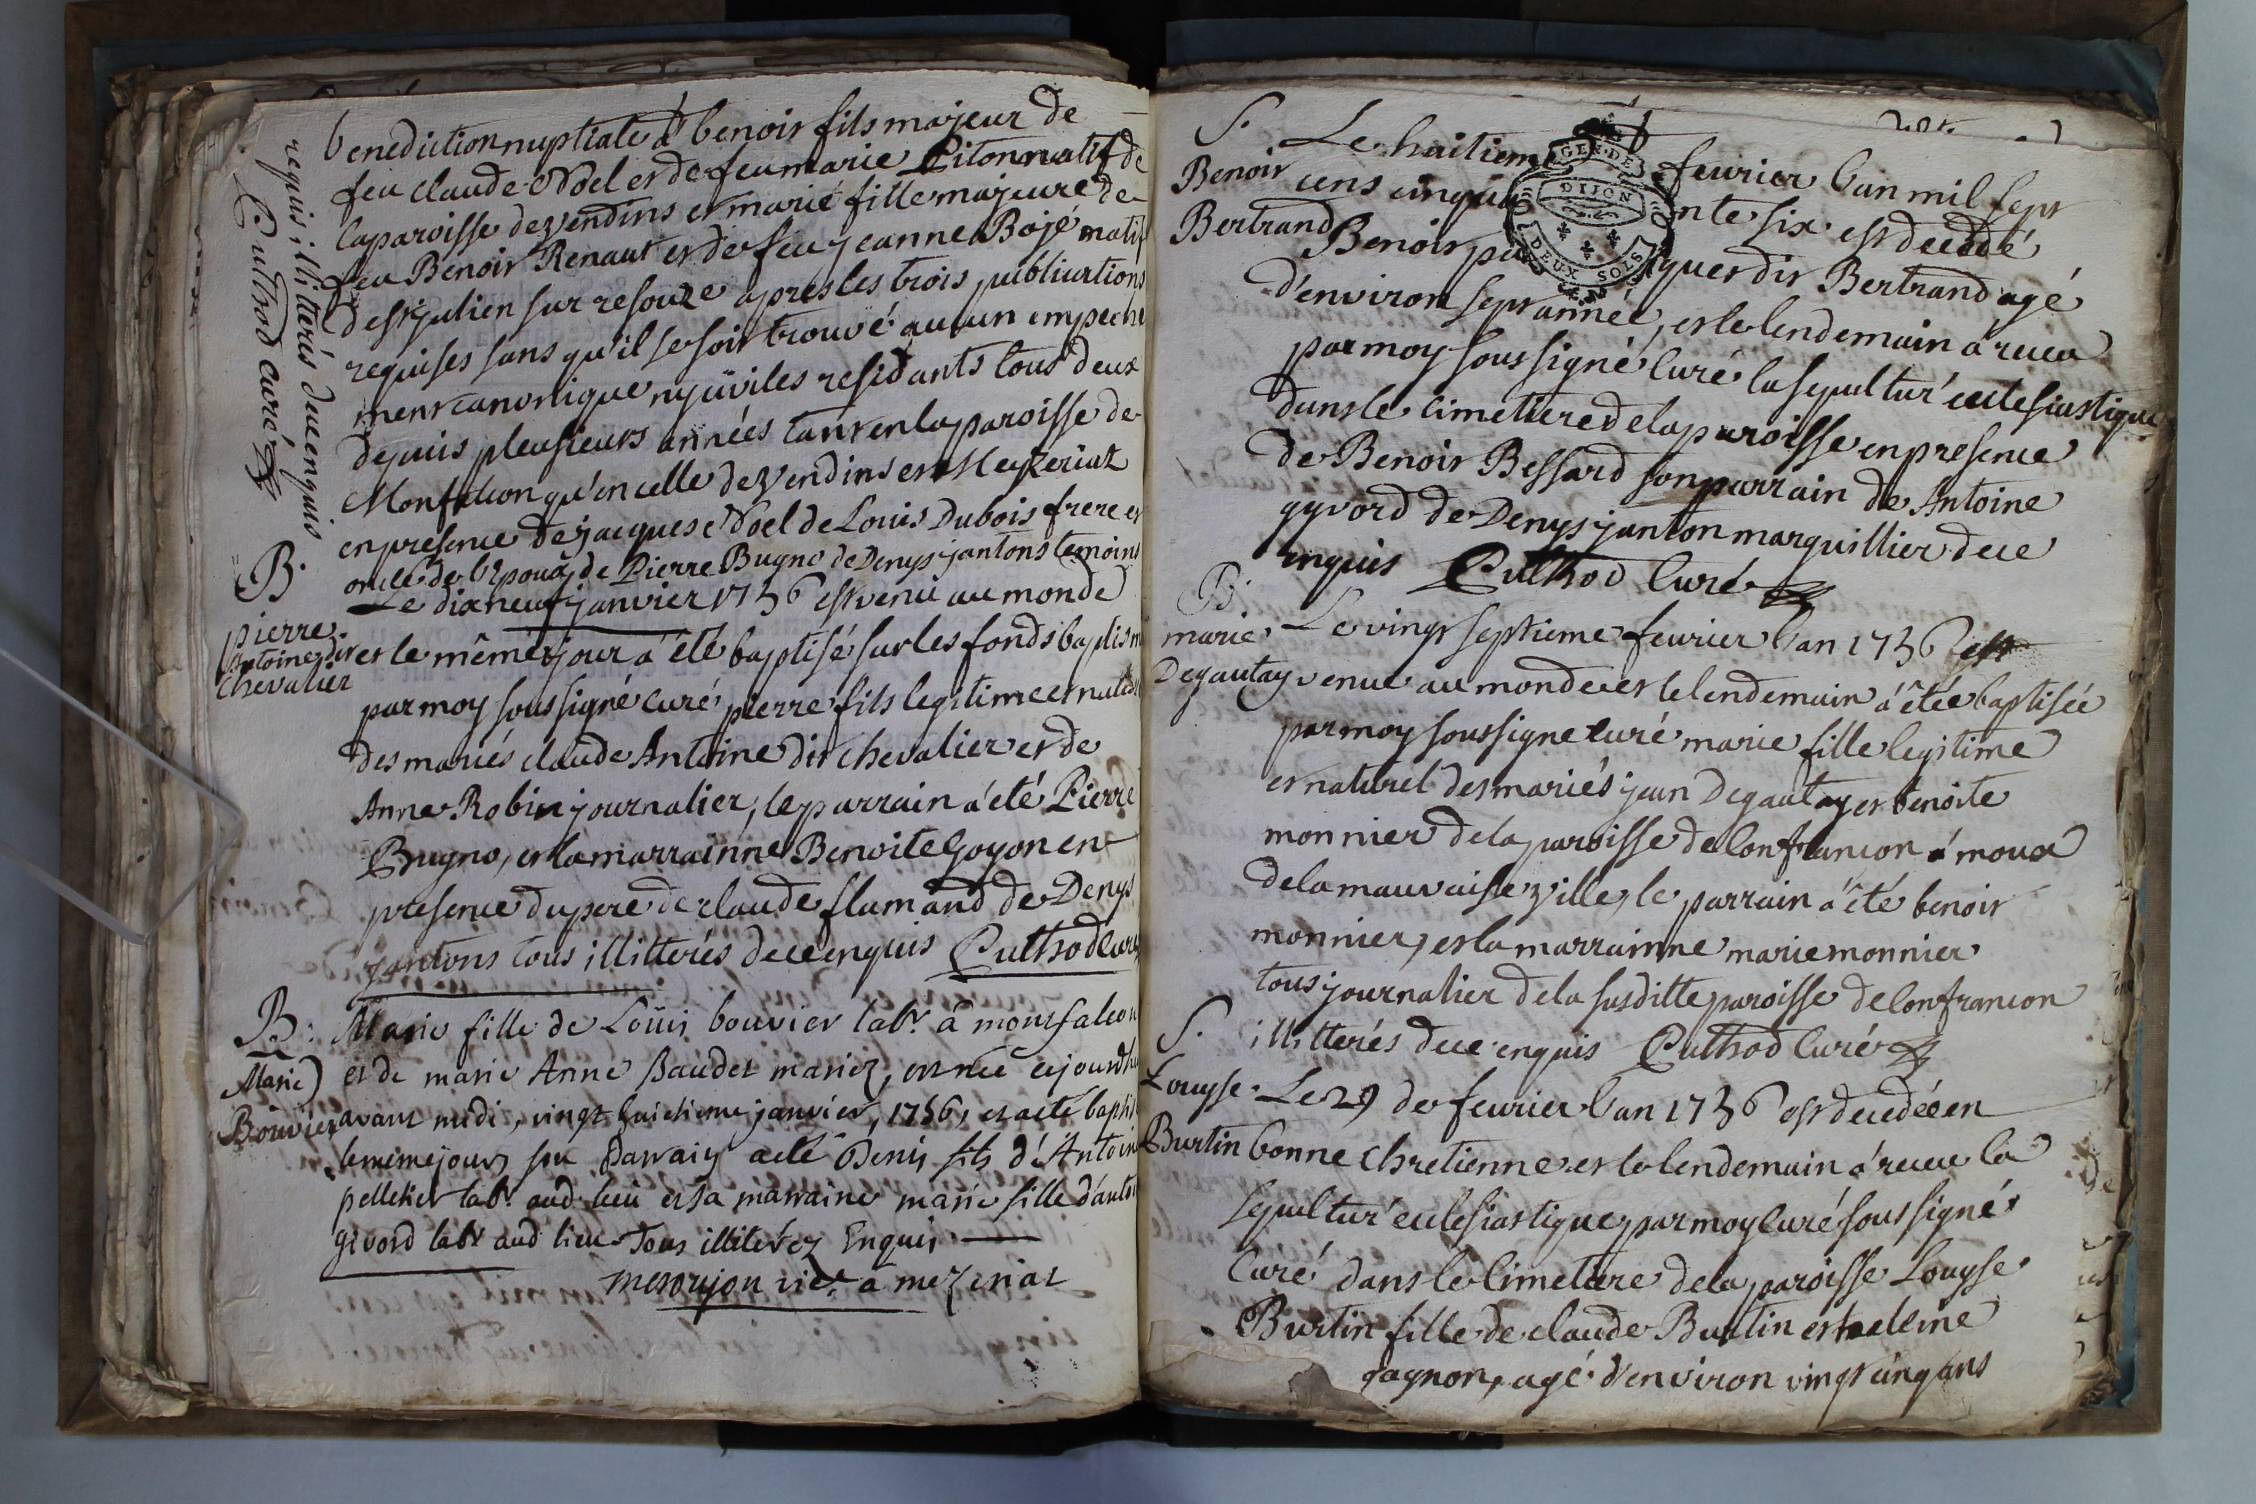 benediction nuptiale á benoit fils majeur de
feu claude Noel et de feu marie Piton natif de
la paroisse de vendins et marie fille majeure de
feu Benoit Renaut et de feu jeanne Bojé natif
de st julien sur resouze apres les trois publications
requises sans qu'il se soit trouvé aucun empeche
ment canonique ny civiles residants tous deux
depuis pleusieurs années tant en la paroisse de
Monfalcon qu'en celle de vendins et Mezeriat
en presence de jacques Noel de Louis Dubois frere et
oncle de l'Epoux, de Pierre Bugno de Denys jantons temoins
requis illitterés de ce enquis
Cuthod curé
B.
pierre
Antoine dit
Chevalier
Le dixneuf janvier 1756 est venu au monde
et le même jour á été baptisé sur les fonds baptism
par moy soussigné curé pierre fils legitime et naturel
des mariés claude Antoine dit chevalier et de
Anne Robin journalier, le parrain á eté Pierre
Bugno, et la marrainne Benoite Goyon en
presence du pere de claude flamand de Denys
jantons tous illitterés de ce enquis Cuthod curé
B:
Marie
Bouvier
Marie fille de Loüis bouvier labr. á montfalcon
et de marie Anne Baudet mariez, est née cejourdhu
avant midi, vingt huictieme janvier, 1756, et a eté baptisé
le meme jour, son Parrain a eté Denis fils d'Antoine
pelletier labr. aud. lieu et sa marraine marie fille d'antoi
givord labr aud lieu Tous illiterez Enquis
mesoujon vicr. a mezeriat
S.
Benoit
Bertrand
Le huitieme fevrier l'an mil sept
cens cinqua nte six est decedé
Benoit pa quet dit Bertrand agé
GEN. DE
DIJON
DEUX SOLS
d'environ sept année, et le lendemain á recu
par moy soussigné Curé la sepultur' ecclesiastique
dans le cimetiere de la paroisse en presence
de Benoit Bessard son parrain de Antoine
gyvord de Denys janton marguillier de ce
enquis Cuthod Curé
B.
marie
Degautay
Le vingt septieme fevrier l'an 1756 est
venue au monde et le lendemain á étée baptisée
par moy soussigne curé marie fille legitime
et naturel des mariés jean Degautay et benoite
monnier de la paroisse de Confrancon á moux
de la mauvaise ville, le parrain á été benoit
monnier, et la marrainne marie monnier
tous journalier de la susditte paroisse de Confrancon
illitterés de ce enquis Cuthod Curé
S.
Louyse
Burtin
Le 29 de fevrier l'an 1756 est decedée en
bonne chretienne et le lendemain á recue la
sepultur' ecclesiastique par moy curé soussigné
Curé dans le Cimetiere de la paroisse Louyse
Burtin fille de claude Burtin et
gagnon, agé d'environ vingt cinq ans